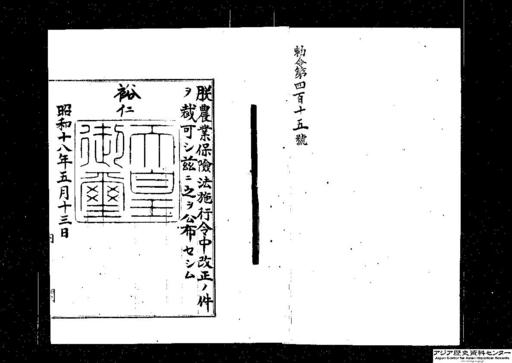 勅令第四百十五號
朕農業保險法施行令中改正ノ件
ヲ裁可シ茲ニ之ヲ公布セシム
裕仁
天皇
御璽
昭和十八年五月十三日
アジア歴史資料センター
Japan Center for Asian Historical Records